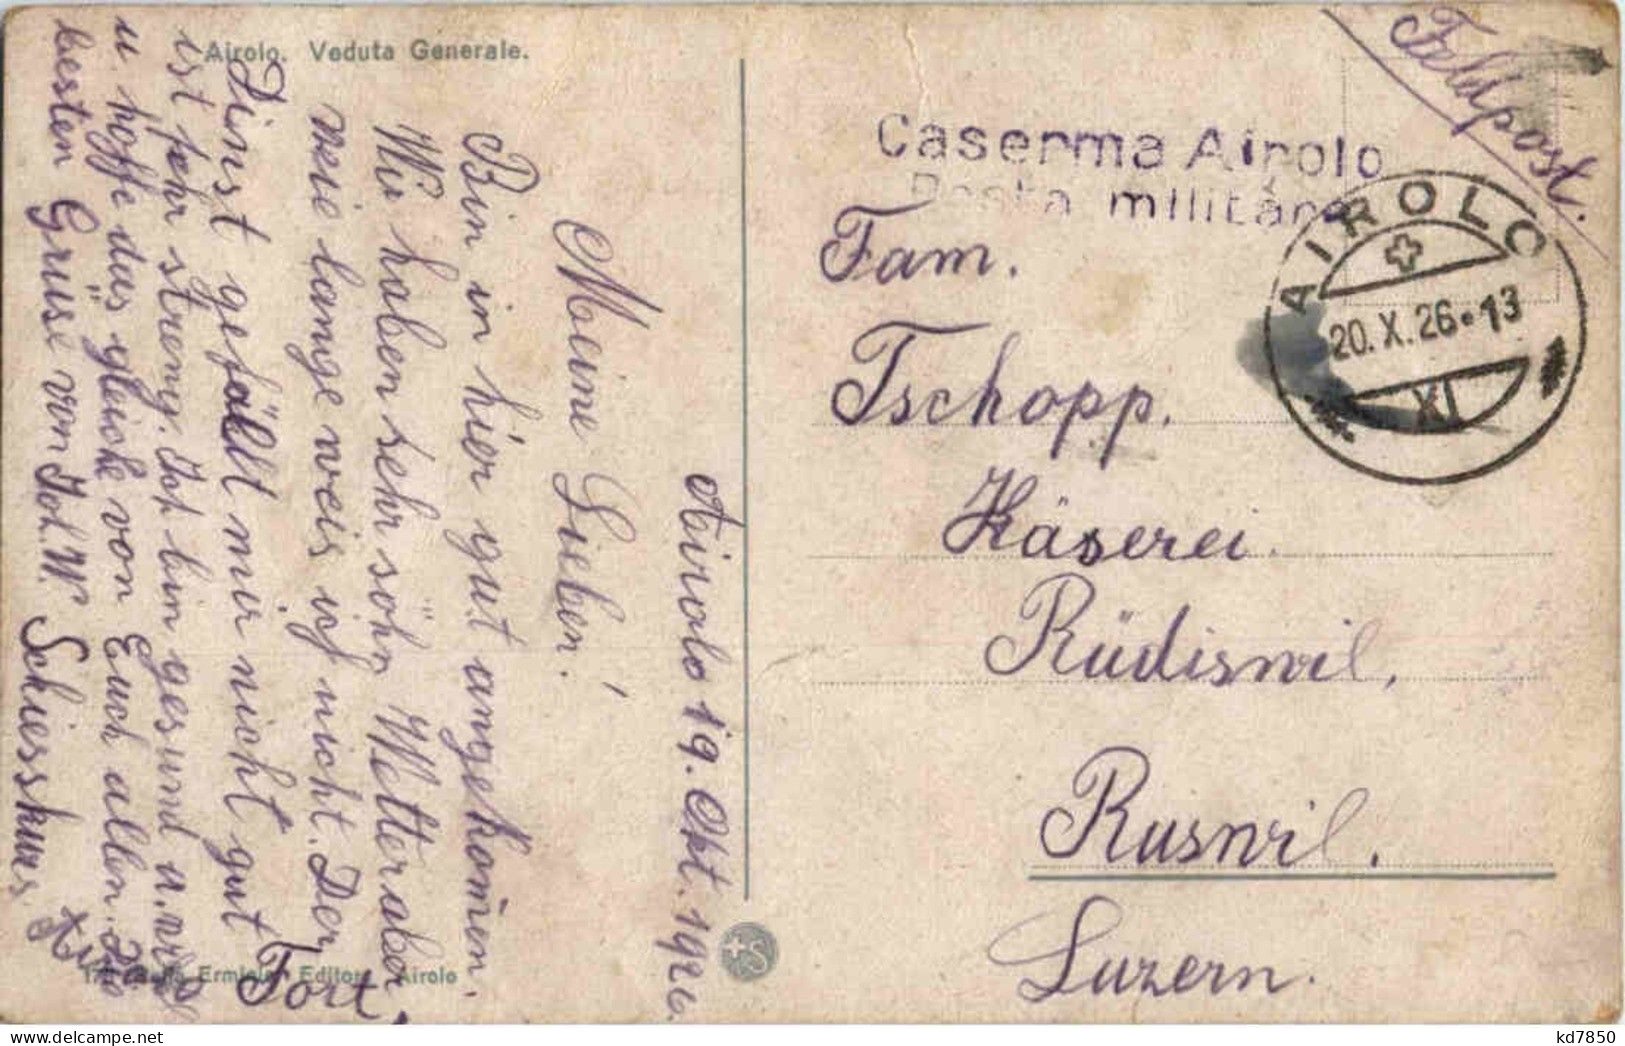 Airolo. Veduta Generale.
Feldpost.
Caserma Airolo
Posta militare
AIROLO
20. X. 26 • 13
XI
Fam.
Tschopp.
Käserei.
Rüdiswil,
Ruswil,
Luzern.
Airolo 19. Okt. 1926.
Meine Lieben!
Bin in hier gut angekom̄en.
Wir haben sehr schön Wetter aber
wie lange weis ich nicht. Der
Dinst gefällt mir nicht gut
ist sehr streng. Ich bin gesund u.
u hoffe das gleiche von Euch allen.
besten Grüse von Joh. W. Schiesskurs
Fort
Ermiola, Editore, Airolo
S
kd7850